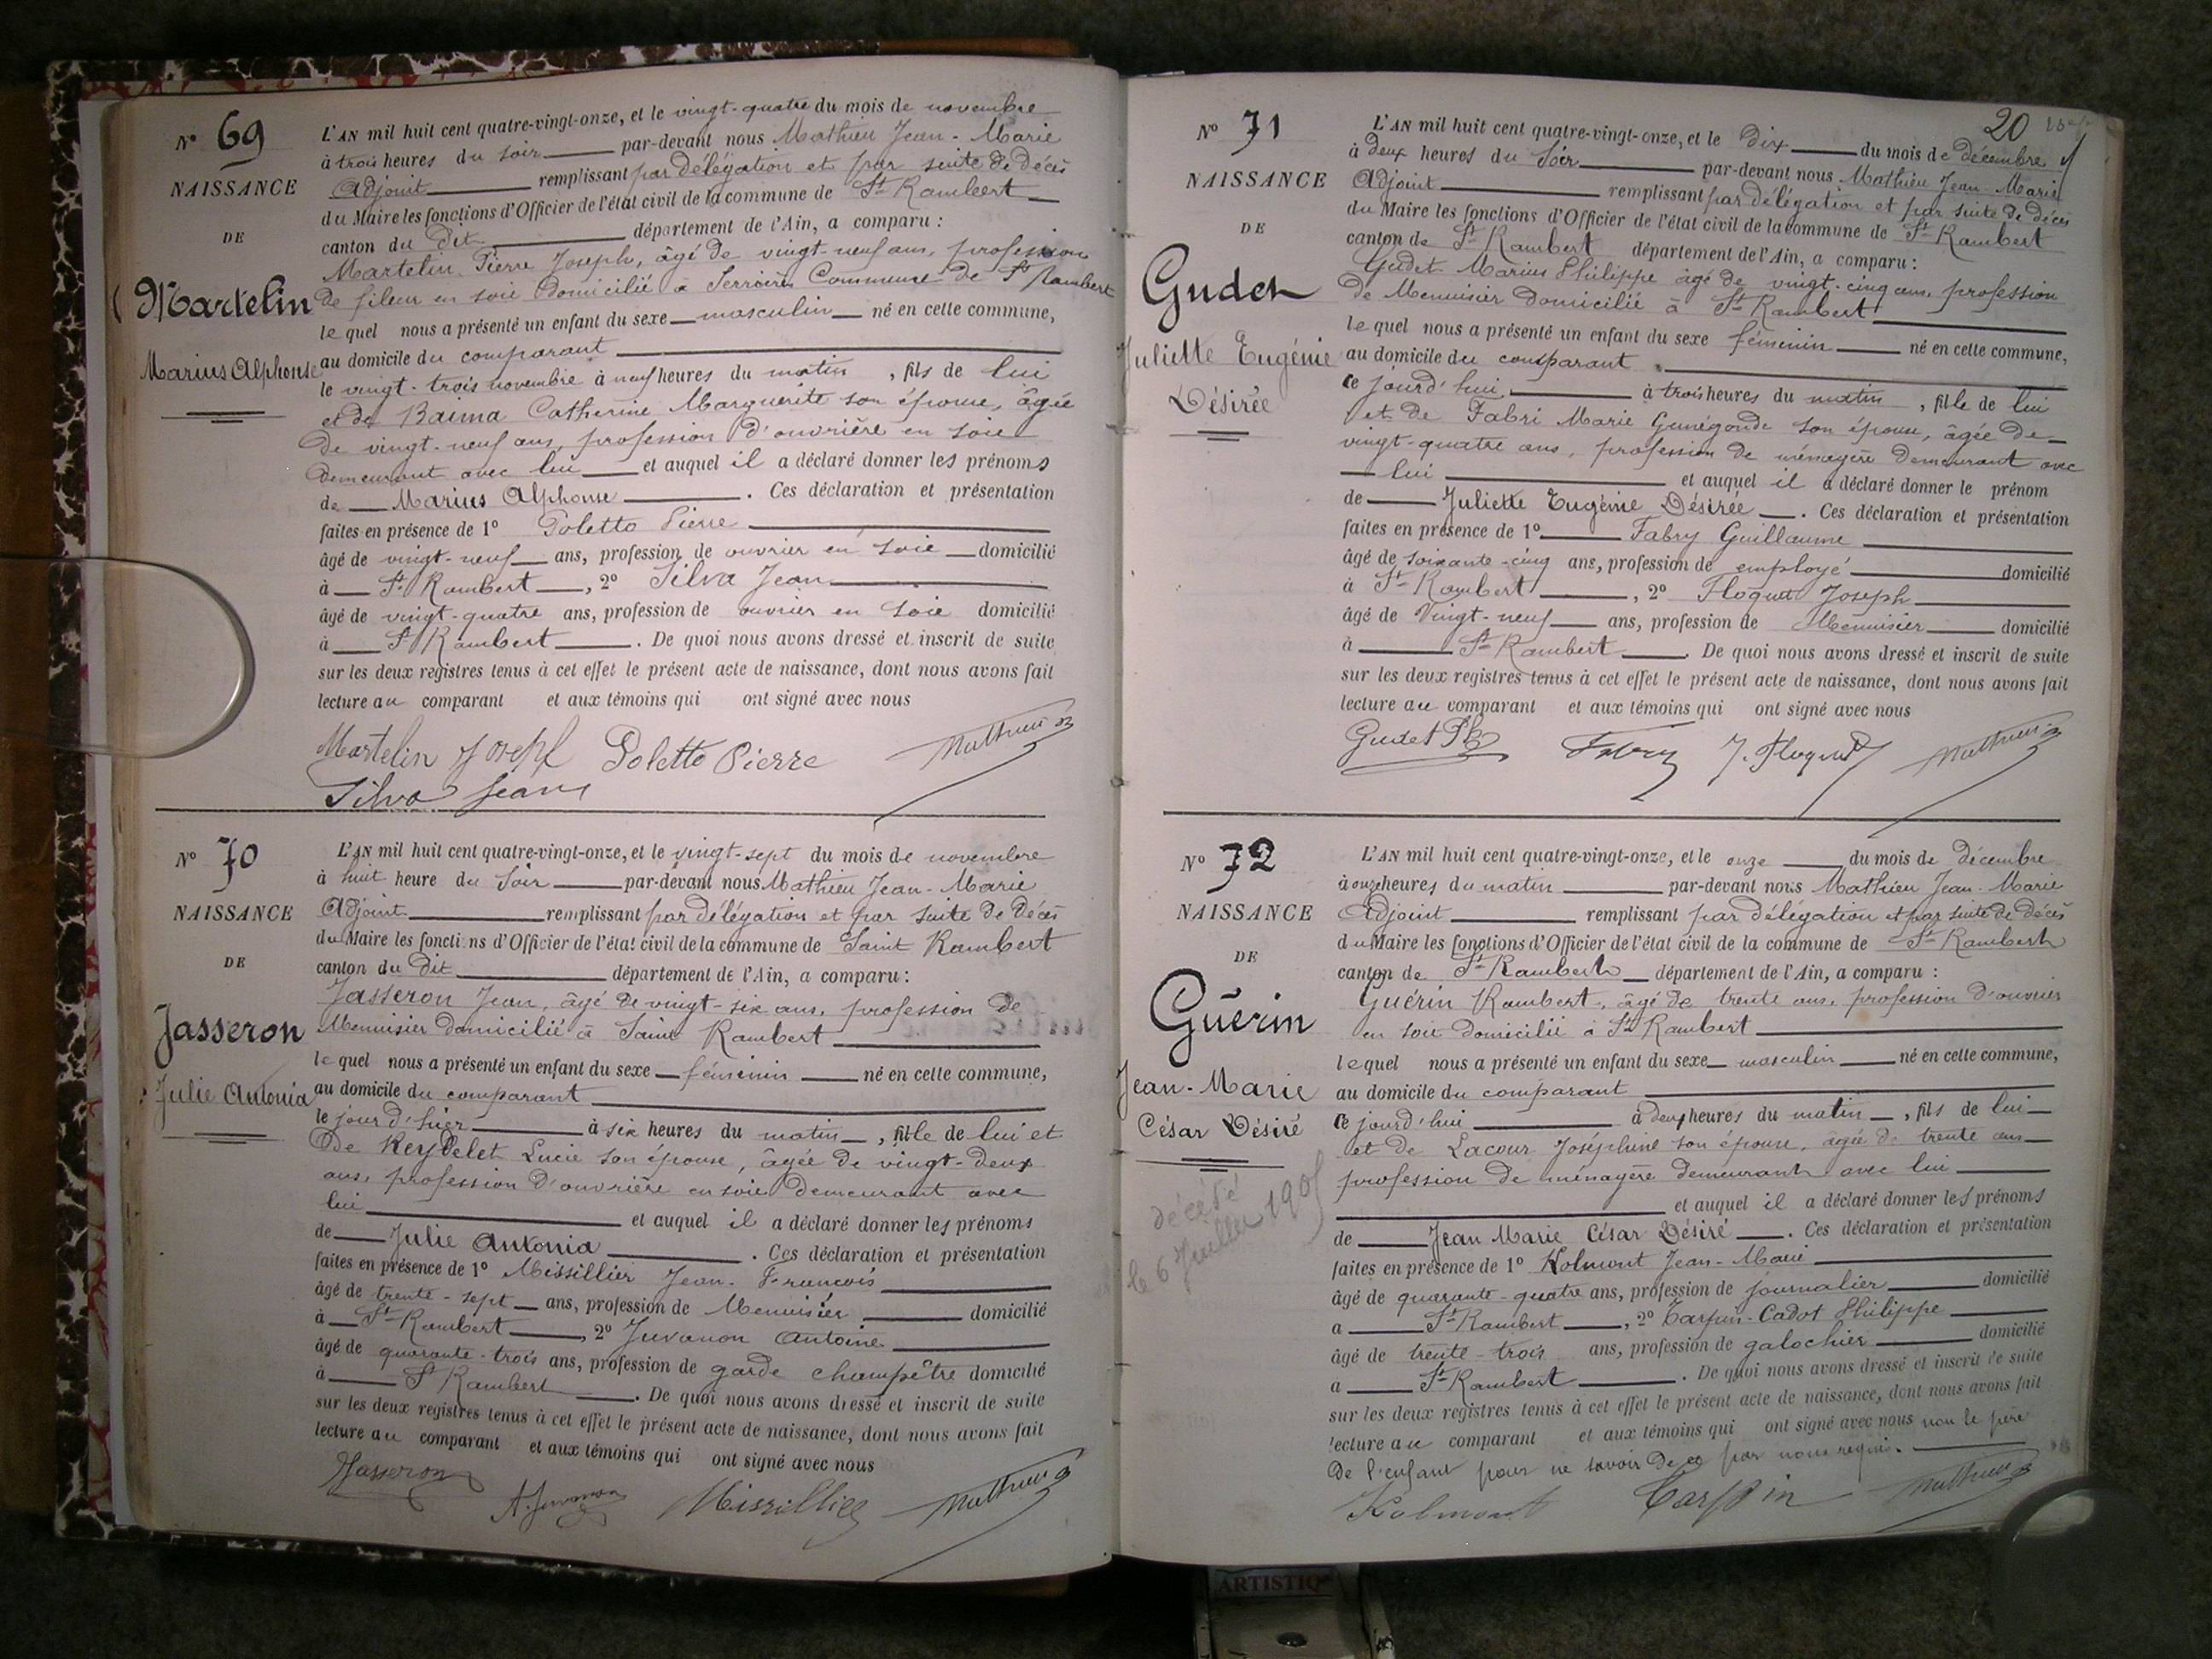 N° 69
NAISSANCE
DE
Martelin
Marius Alphonse
L'AN mil huit cent quatre-vingt-onze, et le vingt-quatre du mois de novembre
à trois heures du soir par-devant nous Mathieu Jean-Marie
Adjoint remplissant par délégation et par suite de décès
du Maire les fonctions d'Officier de l'état civil de la commune de St Rambert
canton du dit département de l'Ain, a comparu :
Martelin Pierre Joseph, âgé de vingt-neuf ans, profession
de fileur en soie domicilié à Serrières Commune de St Rambert
le quel nous a présenté un enfant du sexe masculin né en cette commune,
au domicile du comparant
le vingt-trois novembre à neuf heures du matin, fils de lui
et de Baima Catherine Marguerite son épouse, âgée
de vingt-neuf ans, profession d'ouvrière en soie
demeurant avec lui et auquel il a déclaré donner les prénoms
de Marius Alphonse. Ces déclaration et présentation
faites en présence de 1° Poletto Pierre
âgé de vingt-neuf ans, profession de ouvrier en soie domicilié
à St Rambert, 2° Silva Jean
âgé de vingt-quatre ans, profession de ouvrier en soie domicilié
à St Rambert. De quoi nous avons dressé et inscrit de suite
sur les deux registres tenus à cet effet le présent acte de naissance, dont nous avons fait
lecture au comparant et aux témoins qui ont signé avec nous
Martelin Joseph Poletto Pierre Mathieu
Silva Jean
N° 70
NAISSANCE
DE
Jasseron
Julie Antonia
L'AN mil huit cent quatre-vingt-onze, et le vingt-sept du mois de novembre
à huit heure du soir par-devant nous Mathieu Jean-Marie
Adjoint remplissant par délégation et par suite de décès
du Maire les fonctions d'Officier de l'état civil de la commune de Saint Rambert
canton du dit département de l'Ain, a comparu :
Jasseron Jean, âgé de vingt-six ans, profession de
Menuisier domicilié à Saint Rambert
le quel nous a présenté un enfant du sexe féminin né en cette commune,
au domicile du comparant
le jour d'hier à six heures du matin, fille de lui et
de Reydelet Lucie son épouse, âgée de vingt-deux
ans, profession d'ouvrière en soie demeurant avec
lui et auquel il a déclaré donner les prénoms
de Julie Antonia. Ces déclaration et présentation
faites en présence de 1° Missillier Jean-François
âgé de trente-sept ans, profession de Menuisier domicilié
à St Rambert, 2° Juvanon Antoine
âgé de quarante-trois ans, profession de garde champêtre domicilié
à St Rambert. De quoi nous avons dressé et inscrit de suite
sur les deux registres tenus à cet effet le présent acte de naissance, dont nous avons fait
lecture au comparant et aux témoins qui ont signé avec nous
Jasseron A. Juvanon Missillier Mathieu
20
N° 71
NAISSANCE
DE
Gudet
Juliette Eugénie
Désirée
L'AN mil huit cent quatre-vingt-onze, et le dix du mois de décembre
à deux heures du soir par-devant nous Mathieu Jean-Marie
Adjoint remplissant par délégation et par suite de décès
du Maire les fonctions d'Officier de l'état civil de la commune de St Rambert
canton de St Rambert département de l'Ain, a comparu :
Gudet Marius Philippe âgé de vingt-cinq ans, profession
de Menuisier domicilié à St Rambert
le quel nous a présenté un enfant du sexe féminin né en cette commune,
au domicile du comparant
ce jourd'hui à trois heures du matin, fille de lui
et de Fabri Marie Gunégonde son épouse, âgée de
vingt-quatre ans, profession de ménagère demeurant avec
lui et auquel il a déclaré donner le prénom
de Juliette Eugénie Désirée. Ces déclaration et présentation
faites en présence de 1° Fabry Guillaume
âgé de soixante-cinq ans, profession de employé domicilié
à St Rambert, 2° Floquet Joseph
âgé de Vingt-neuf ans, profession de Menuisier domicilié
à St Rambert. De quoi nous avons dressé et inscrit de suite
sur les deux registres tenus à cet effet le présent acte de naissance, dont nous avons fait
lecture au comparant et aux témoins qui ont signé avec nous
Gudet Ph Fabry J. Floquet Mathieu
N° 72
NAISSANCE
DE
Guérin
Jean-Marie
César Désiré
décédé
le 6 Juillet 1905
L'AN mil huit cent quatre-vingt-onze, et le onze du mois de décembre
à onze heures du matin par-devant nous Mathieu Jean-Marie
Adjoint remplissant par délégation et par suite de décès
du Maire les fonctions d'Officier de l'état civil de la commune de St Rambert
canton de St Rambert département de l'Ain, a comparu :
Guérin Rambert, âgé de trente ans, profession d'ouvrier
en soie domicilié à St Rambert
lequel nous a présenté un enfant du sexe masculin né en cette commune,
au domicile du comparant
ce jourd'hui à deux heures du matin, fils de lui
et de Lacour Joséphine son épouse, âgée de trente ans
profession de ménagère demeurant avec lui
et auquel il a déclaré donner les prénoms
de Jean Marie César Désiré. Ces déclaration et présentation
faites en présence de 1° Kolmont Jean-Marie
âgé de quarante-quatre ans, profession de journalier domicilié
a St Rambert, 2° Carpin-Cadot Philippe
âgé de trente-trois ans, profession de galochier domicilié
a St Rambert. De quoi nous avons dressé et inscrit de suite
sur les deux registres tenus à cet effet le présent acte de naissance, dont nous avons fait
lecture au comparant et aux témoins qui ont signé avec nous non le père
de l'enfant pour ne savoir de ce par nous requis.
Kolmont Carpin Mathieu
ARTISTIQ